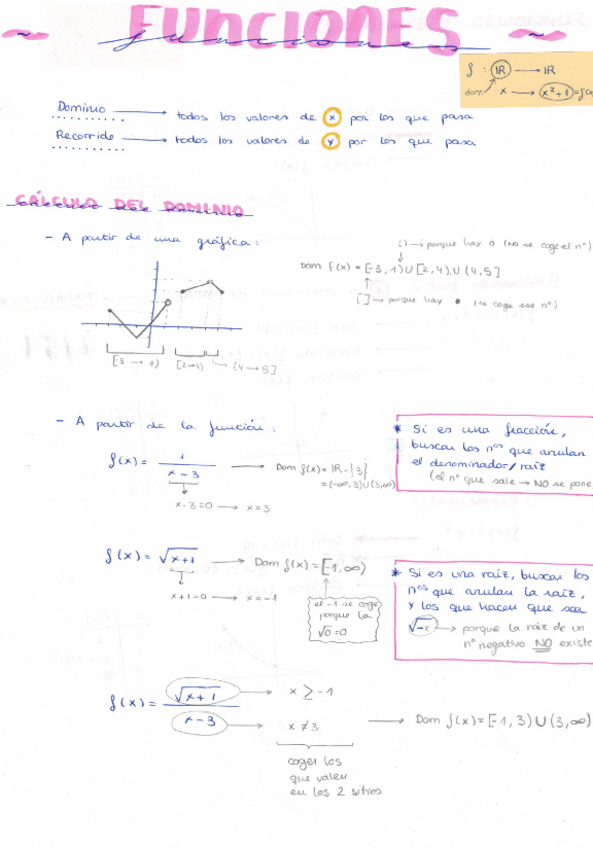 FUNCIONES
funciones
f : IR → IR
dom x → x²+1 = f(x)
Dominio → todos los valores de x por los que pasa
Recorrido → todos los valores de y por los que pasa
CÁLCULO DEL DOMINIO
- A partir de una gráfica:
( ) → porque hay o (no se coge el nº)
Dom f(x) = [-3, 1) U [2, 4) U (4, 5]
[ ] → porque hay • (se coge ese nº)
[-3 → 1) [2→4) (4 → 5]
- A partir de la función:
f(x) = 1 / x - 3 → Dom f(x) = IR - {3}
= (-∞, 3) U (3, ∞)
x - 3 = 0 → x = 3
* Si es una fracción,
buscar los nos que anulan
el denominador/raíz
(el nº que sale → NO se pone
f(x) = √x+1 → Dom f(x) = [-1, ∞)
x + 1 = 0 → x = -1
el -1 se coge
porque la
√0 = 0
* Si es una raíz, buscar los
nos que anulan la raíz,
y los que hacen que sea
√-x → porque la raíz de un
nº negativo NO existe
f(x) = √x+1 / x - 3
→ x ≥ -1
→ x ≠ 3
→ Dom f(x) = [-1, 3) U (3, ∞)
coger los
que valen
en los 2 sitios